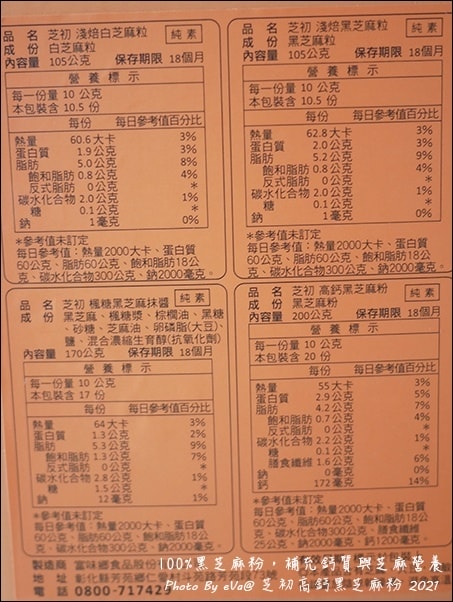 品　名　芝初 淺焙白芝麻粒　純素
成　份　白芝麻粒
內容量　105公克　保存期限　18個月
營養標示
每一份量 10 公克
本包裝含 10.5 份
每份　每日參考值百分比
熱量　60.6大卡　3%
蛋白質　1.9公克　3%
脂肪　5.0公克　8%
飽和脂肪 0.8公克　4%
反式脂肪 0公克　*
碳水化合物 2.0公克　1%
糖　0.1公克　*
鈉　1毫克　0%
*參考值未訂定
每日參考值：熱量2000大卡、蛋白質
60公克、脂肪60公克、飽和脂肪18公
克、碳水化合物300公克、鈉2000毫克。
品　名　芝初 淺焙黑芝麻粒　純素
成　份　黑芝麻粒
內容量　105公克　保存期限　18個月
營養標示
每一份量 10 公克
本包裝含 10.5 份
每份　每日參考值百分比
熱量　62.8大卡　3%
蛋白質　2.0公克　3%
脂肪　5.2公克　9%
飽和脂肪 0.8公克　4%
反式脂肪 0公克　*
碳水化合物 2.0公克　1%
糖　0.1公克　*
鈉　1毫克　0%
*參考值未訂定
每日參考值：熱量2000大卡、蛋白質
60公克、脂肪60公克、飽和脂肪18公
克、碳水化合物300公克、鈉2000毫克。
品　名　芝初 楓糖黑芝麻抹醬　純素
成　份　黑芝麻、楓糖漿、棕櫚油、黑糖
、砂糖、芝麻油、卵磷脂(大豆)、
鹽、混合濃縮生育醇(抗氧化劑)
內容量　170公克　保存期限　18個月
營養標示
每一份量 10 公克
本包裝含 17 份
每份　每日參考值百分比
熱量　64大卡　3%
蛋白質　1.3公克　2%
脂肪　5.3公克　9%
飽和脂肪 1.3公克　7%
反式脂肪 0公克　*
碳水化合物 2.8公克　1%
糖　1.5公克　*
鈉　12毫克　1%
*參考值未訂定
每日參考值：熱量2000大卡、蛋白質
60公克、脂肪60公克、飽和脂肪18公
克、碳水化合物300公克、鈉2000毫克。
品　名　芝初 高鈣黑芝麻粉　純素
成　份　黑芝麻粉
內容量　200公克　保存期限　18個月
營養標示
每一份量 10 公克
本包裝含 20 份
每份　每日參考值百分比
熱量　55大卡　3%
蛋白質　2.9公克　5%
脂肪　4.2公克　7%
飽和脂肪 0.7公克　4%
反式脂肪 0公克　*
碳水化合物 2.2公克　1%
糖　0.1公克　*
膳食纖維 1.6公克　6%
鈉　0毫克　0%
鈣　172毫克　14%
*參考值未訂定
每日參考值：熱量2000大卡、蛋白質
60公克、脂肪60公克、飽和脂肪18公
克、碳水化合物300公克、膳食纖維
25公克、鈉2000毫克、鈣1200毫克。
製造商　富味鄉食品股份
地　址　彰化縣芳苑鄉
電　話　0800-71742
100%黑芝麻粉，補充鈣質與芝麻營養
Photo By eVa@ 芝初高鈣黑芝麻粉 2021